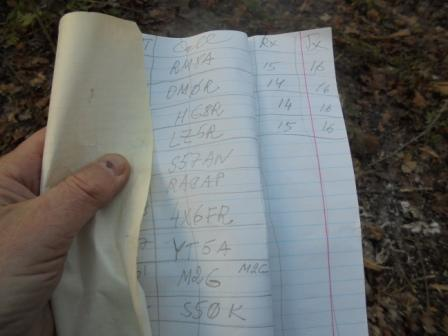 T Call Rx Tx
RM5A 15 16
OM0R 14 16
HG8R 14 16
LZ5R 15 16
S57AN
4X6FR
YT5A
M2G M2C
S50K